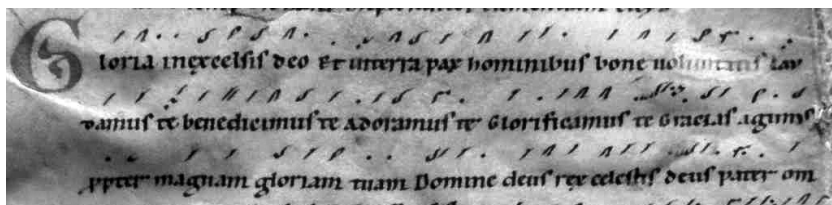 Gloria inexcelsis deo Et interra pax hominibus bone uoluntatis lau
damus te benedicimus te Adoramus te Glorificamus te Gracias agimus
propter magnam gloriam tuam Domine deus rex celestis deus pater om